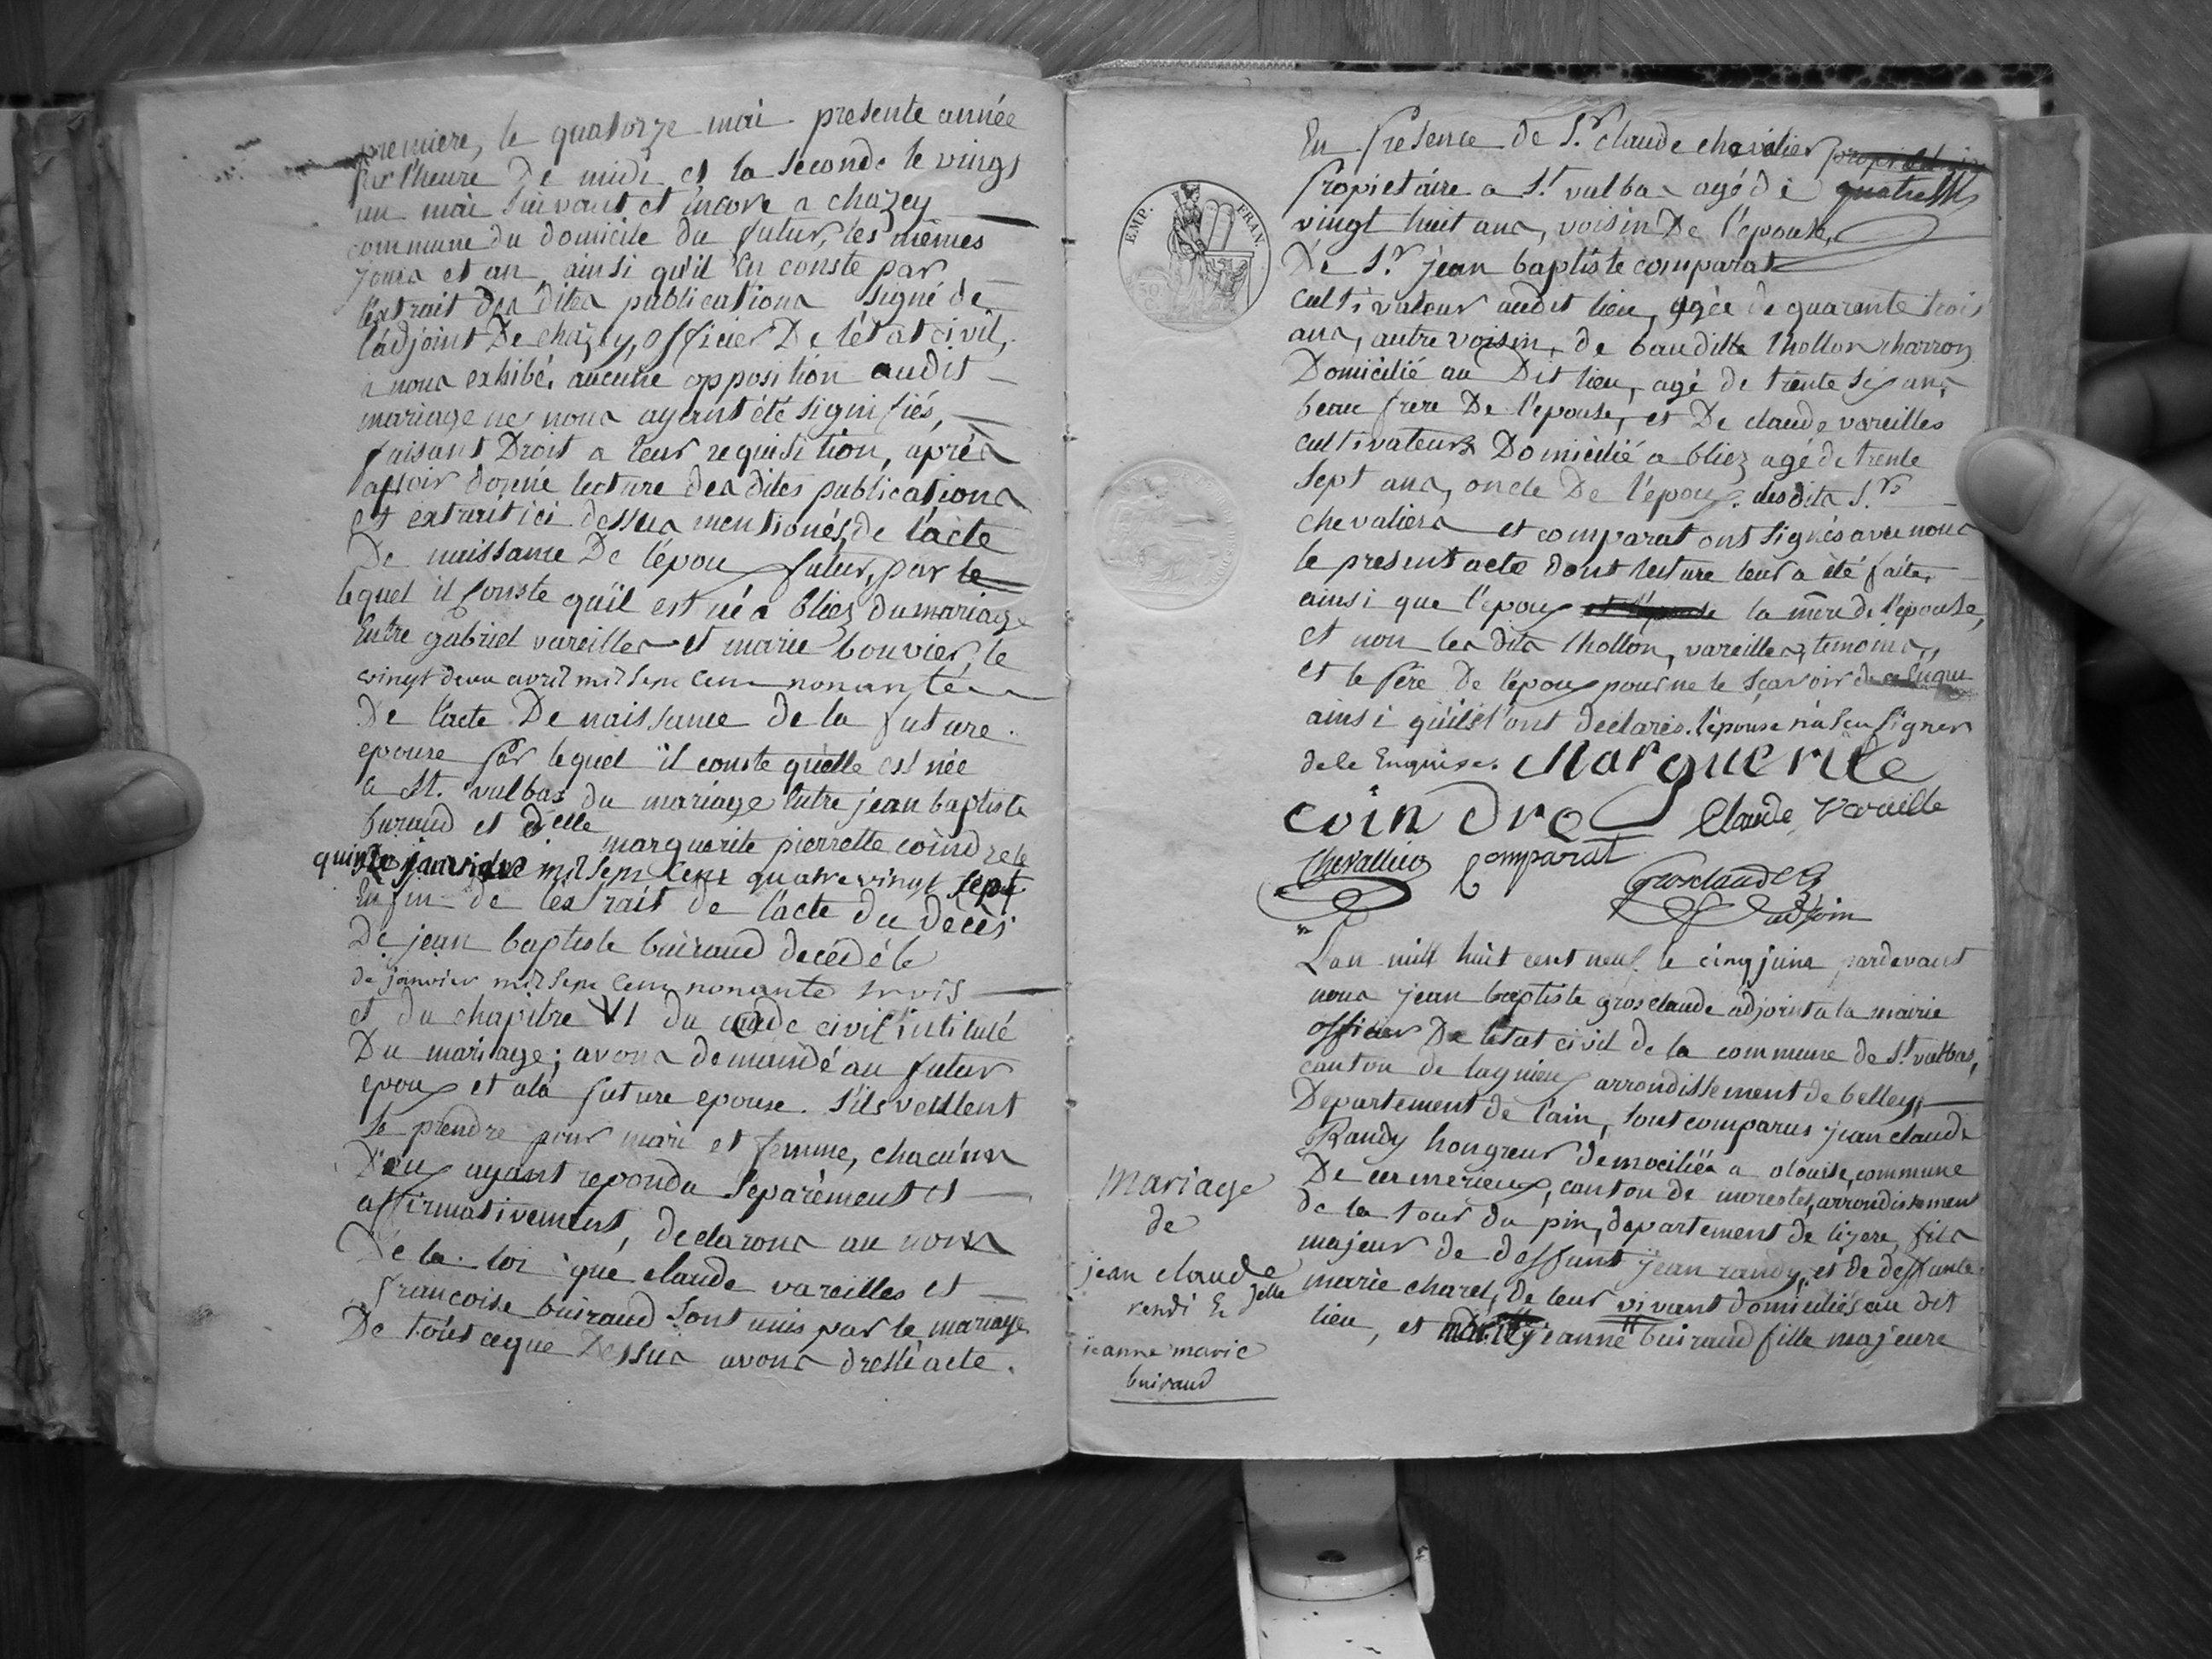 premiere, le quatorze mai presente année
sur l'heure De midi et la seconde le vingt
un mai suivant et encore a chazey
commune du domicile du futur, les mêmes
jours et an, ainsi qu'il en conste par
l'extrait des dites publications signé de
l'adjoint De chazey, officier De l'état civil,
a nous exhibé, aucune opposition audit
mariage ne nous ayant été signifiés,
faisant Droit a leur requisition, après
avoir donné lecture des dites publications
et extrait ici dessus mentionés, de l'acte
De naissance De l'epoux futur, par le
lequel il conste qu'il est né a bliez du mariage
Entre gabriel vareilles et marie bouvier, le
vingt deux avril mil sept cent nonante
De l'acte De naissance de la future
epouse par lequel il conste qu'elle est née
a St. vulbas du mariage Entre jean baptiste
buiraud et delle marguerite pierrette coindre le
quinze janvier mil sept cent quatre vingt sept
Enfin de l'extrait de l'acte du décès
De jean baptiste buiraud decédé le
de janvier mil sept cent nonante trois
et du chapitre VI du code civil intitulé
Du mariage; avons demandé au futur
epoux et a la future epouse. s'ils veullent
se prendre pour mari et femme, chacun
D'eux ayant repondu separément et
affirmativement, declarons au nom
De la loi que claude vareilles et
francoise buiraud sont unis par le mariage
De tout ce que Dessus avons dressé acte.
EMP. FRAN.
En presence de S.r claude chevalier propriétaire
propietaire a S.t vulbas agé de quatre
vingt huit ans, voisin De l'epouse,
De S.r jean baptiste comparat
cultivateur audit lieu, agée de quarante trois
ans, autre voisin, de baudille thollon charron
Domicilié au Dit lieu, agé de trente six ans,
beau frere De l'epouse, et De claude vareilles
cultivateur Domicilié a bliez agé de trente
sept ans, oncle De l'epoux. lesdits S.rs
chevaliers et comparat ont signés avec nous
le present acte dont lecture leur a été faite,
ainsi que l'epoux et l'epouse la mère de l'epouse,
et non les dits thollon, vareilles, temoins,
et le père De l'epoux pour ne le sçavoir de ce Enquis
ainsi qu'ils l'ont declarés. l'epouse n'a seu signer
de ce Enquise. Marguerite
coindre Claude Varaille
Chevallier Comparat
Grosclaude
adjoin
L'an mill huit cent neuf le cinq juin pardevant
nous jean baptiste grosclaude adjoint a la mairie
officier De l'etat civil de la commune de S.t vulbas,
canton de lagnieu arrondissement de belley,
Departement de l'ain, sont comparus jean claude
Randy hongreur demociliés a olouise, commune
De cermerieux, canton de morestel, arrondissement
de la tour du pin, departement de lizere, fils
majeur de deffunt jean randy, et de deffunte
marie charel, de leur vivant domiciliés au dit
lieu, et jeanne buiraud fille majeure
mariage
de
jean claude
rendi Et delle
jeanne marie
buiraud